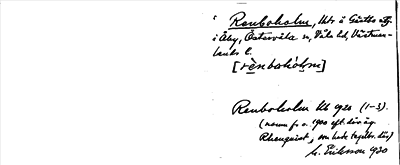 Renboholm, Hdr å Gästbo äg.
i Åby, Östervåla sn, Våla hd, Västman-
lands l.
[rènbohòlm]
Renboholm kb 1920 (1-3).
(namn fr o. 1900 eft. dåv. äg.
Rhenquist, som hade tegelbr. där)
Eriksson 930